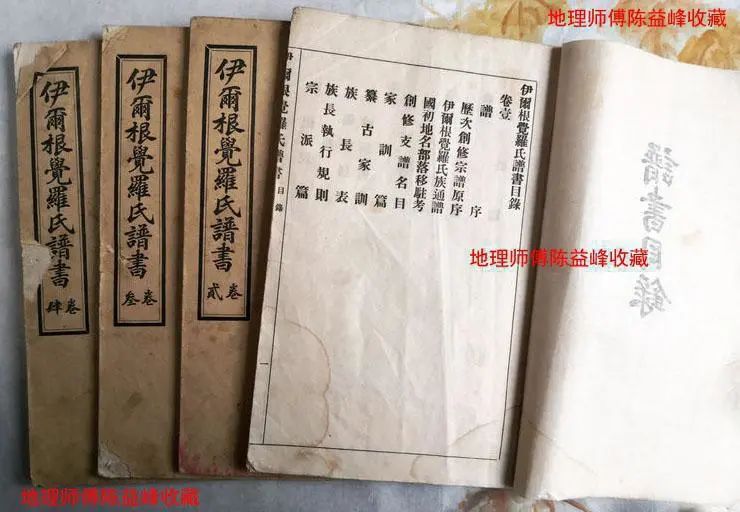 地理师傅陈益峰收藏
譜書目錄
地理师傅陈益峰收藏
伊爾根覺羅氏譜書目錄
卷壹
譜序
歷次創修宗譜原序
伊爾根覺羅氏族通譜
國初地名部落移駐考
創修支譜名目
家訓篇
纂古家訓
族長表
族長執行規則
宗派篇
伊爾根覺羅氏譜書 目錄 一
伊爾根覺羅氏譜書 卷貳
伊爾根覺羅氏譜書 卷叁
伊爾根覺羅氏譜書 卷肆
地理师傅陈益峰收藏